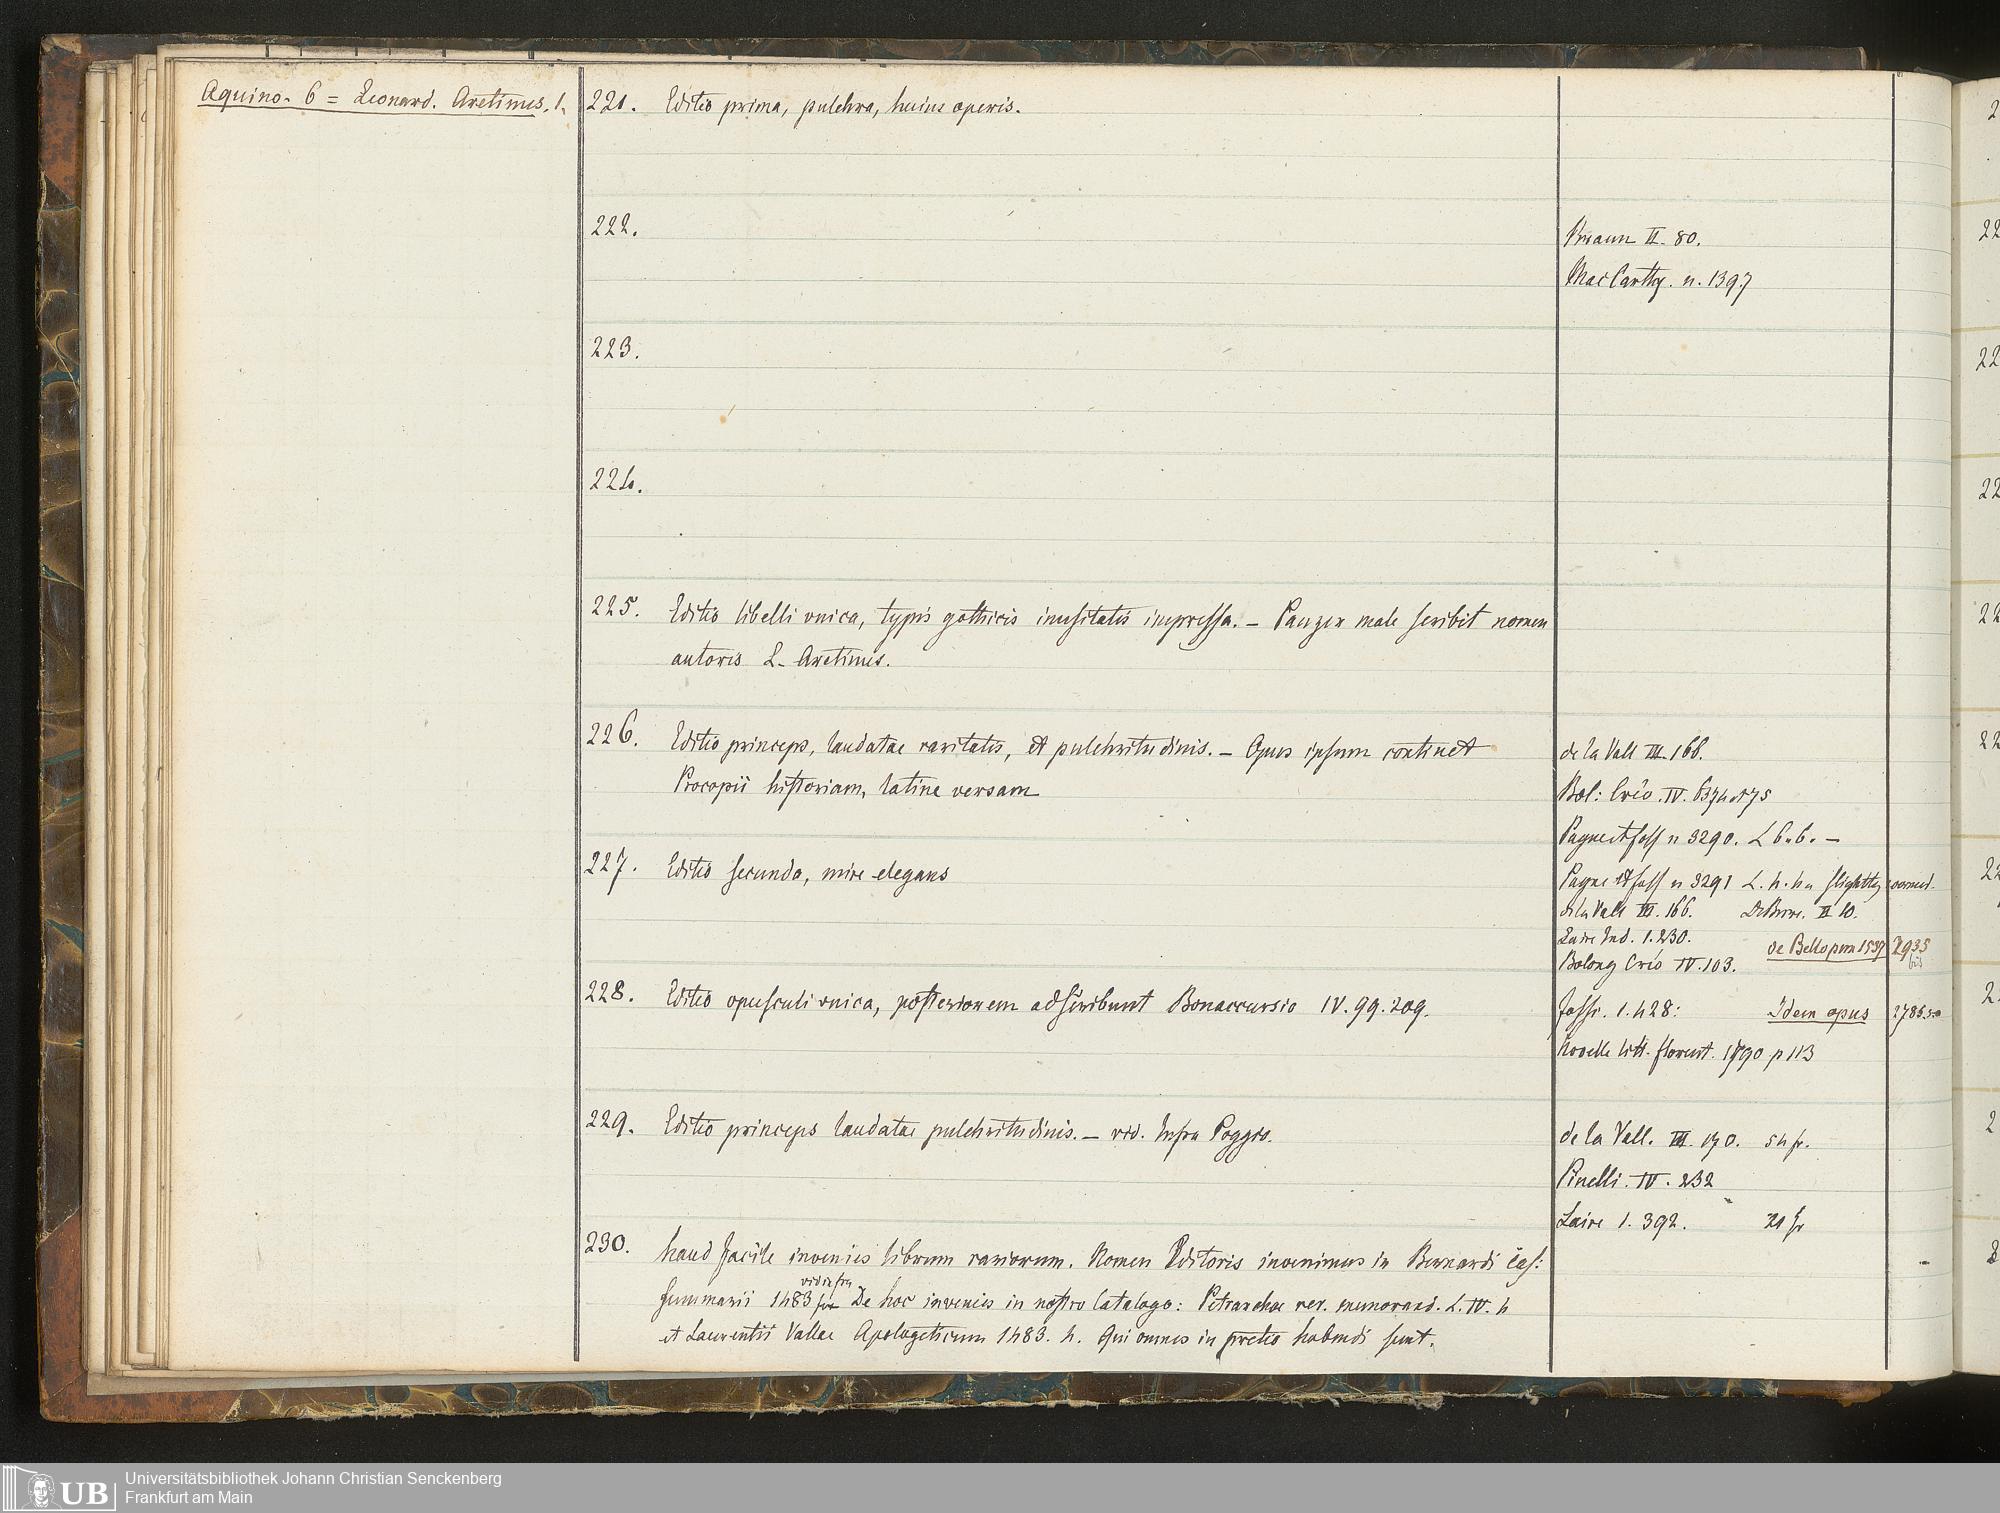 Aquino. 6 = Leonard. Aretinus. 1.
221. Editio prima, pulchra, huius operis.
222.
Pinaun II. 80.
MacCarthy. n. 1397
223.
224.
225. Editio libelli vnica, typis gothicis inusitatis impressa. — Panzer male scribit nomen
autoris L. Aretinus.
226. Editio princeps, laudatae raritatis, et pulchritudinis. — Opus ipsum continet
Procopii historiam, latine versam
de la Vall III. 166.
Bol: Crév. IV. 6374 et 75
Payne et foss n 3290. L 6.6. —
227. Editio secunda, mire elegans
Payne et foss n 3291 L. 4.4. slightly wormed.
de la Vall III. 166. De Bure. II 10.
Laire Ind. 1. 230.
de Bello pun 1537 2935
bis
Bolong Crév IV. 103.
228. Editio opusculi vnica, posteriorem adscribunt Bonaccursio IV. 99. 209.
fossi. 1. 428: Idem opus 2785.
Novelle litt. florent. 1790 p 113
229. Editio princeps laudatae pulchritudinis. — vid. Infra Poggio.
de la Vall. III. 170. 54 fr.
Pinelli. IV. 232
Laire 1. 392. 21 fr
230. haud facile invenies librum rariorum. Nomen Editoris invenimus in Bernardi Cas:
vid infra
Summarii 1483 De hoc invenies in nostro Catalogo: Petrarchae rer. memorand. L. IV. 4
et Laurentii Vallae Apologeticum 1483. 4. Qui omnes in pretio habendi sunt.
Universitätsbibliothek Johann Christian Senckenberg
Frankfurt am Main
UB